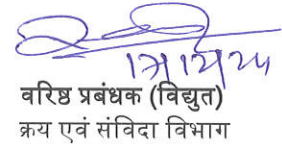 वरिष्ठ प्रबंधक (विद्युत)
क्रय एवं संविदा विभाग